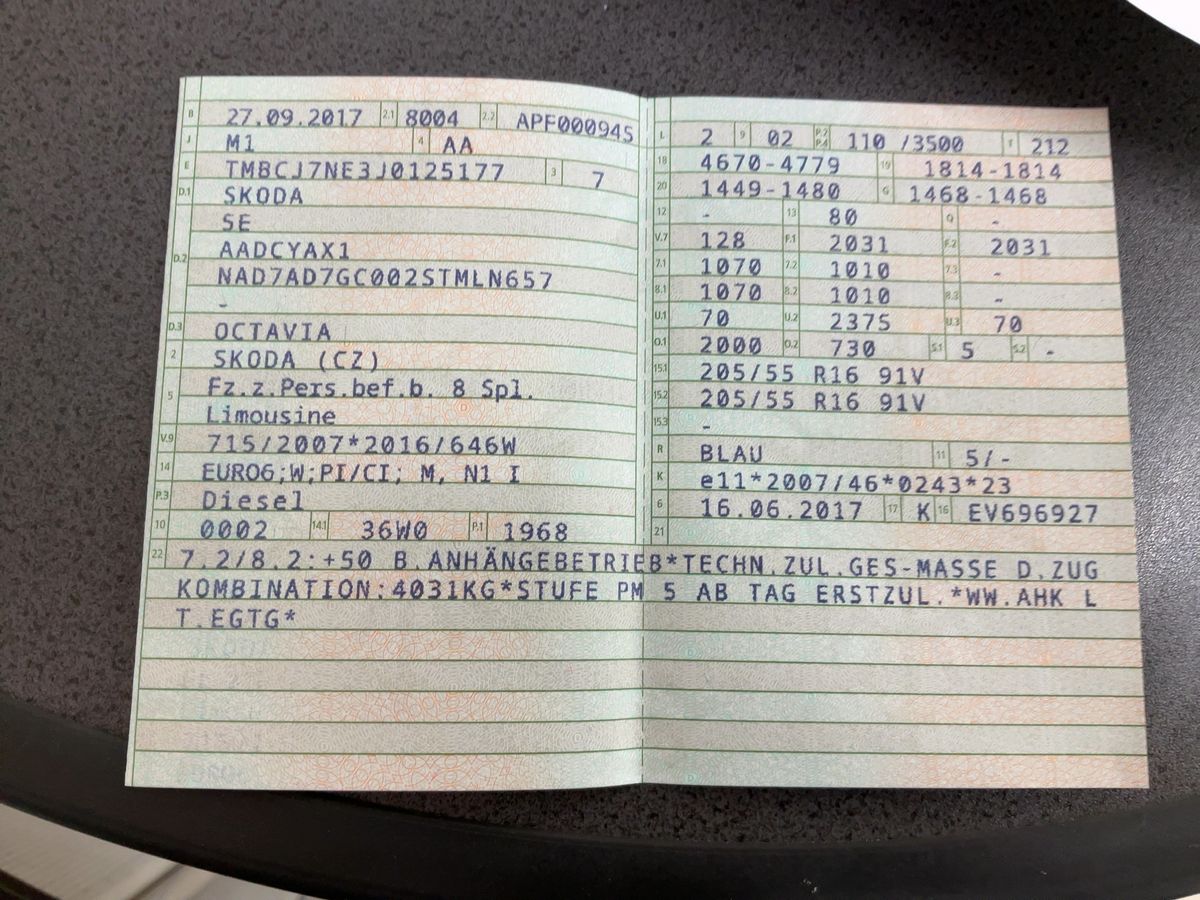 B 27.09.2017 2.1 8004 2.2 APF000945
J M1 4 AA
E TMBCJ7NE3J0125177 3 7
D.1 SKODA
SE
D.2 AADCYAX1
NAD7AD7GC002STMLN657
-
D.3 OCTAVIA
2 SKODA (CZ)
5 Fz.z.Pers.bef.b. 8 Spl.
Limousine
V.9 715/2007*2016/646W
14 EURO6;W;PI/CI; M, N1 I
P.3 Diesel
10 0002 14.1 36W0 P.1 1968
L 2 9 02 P.2 P.4 110 /3500 T 212
18 4670-4779 19 1814-1814
20 1449-1480 G 1468-1468
12 - 13 80 Q -
V.7 128 F.1 2031 F.2 2031
7.1 1070 7.2 1010 7.3 -
8.1 1070 8.2 1010 8.3 -
U.1 70 U.2 2375 U.3 70
O.1 2000 O.2 730 S.1 5 S.2 -
15.1 205/55 R16 91V
15.2 205/55 R16 91V
15.3 -
R BLAU 11 5/-
K e11*2007/46*0243*23
6 16.06.2017 17 K 16 EV696927
21
22 7.2/8.2:+50 B.ANHÄNGEBETRIEB*TECHN.ZUL.GES-MASSE D.ZUG
KOMBINATION:4031KG*STUFE PM 5 AB TAG ERSTZUL.*WW.AHK L
T.EGTG*